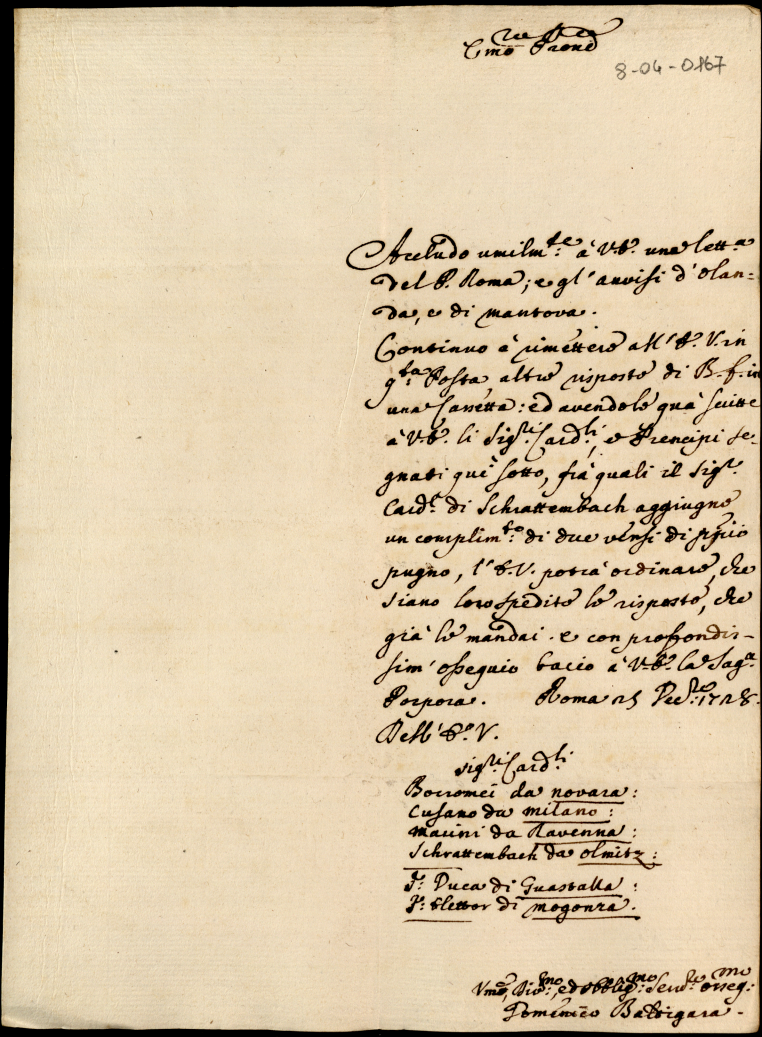 Em̃o e Rev. Prone
8-04-0167
Accludo umilm.te à V.E. una lett.a
del P. Roma; e gl'auvisi d'Olan=
da, e di Mantova.
Continuo à rimettere all'E.V. in
q.ta Posta altre risposte di B. f. in
una Cassetta: ed avendole quà scritte
à V.E. li Sig.ri Card.li, e Prencipi se-
gnati quì sotto, frà quali il Sig.r
Card.l di Schrattembach aggiugne
un complim.to di due versi di ppio
pugno, l'E.V. potrà ordinare, che
siano loro spedite le risposte, che
già le mandai. e con profondis-
sim'ossequio bacio à V.E. la Sag.a
Porpora. Roma 25 Dec.re 1728.
Dell'E.V.
Sig.ri Card.li
Borromei da Novara:
Cusano da Milano:
Marini da Ravenna:
Schrattembach da Olmitz:
S. Duca di Guastalla:
S. Elettor di Mogonza.
Vm̃o, Div.mo, ed obblig.mo Serv.re osseq.mo
Domenico Baltigara.